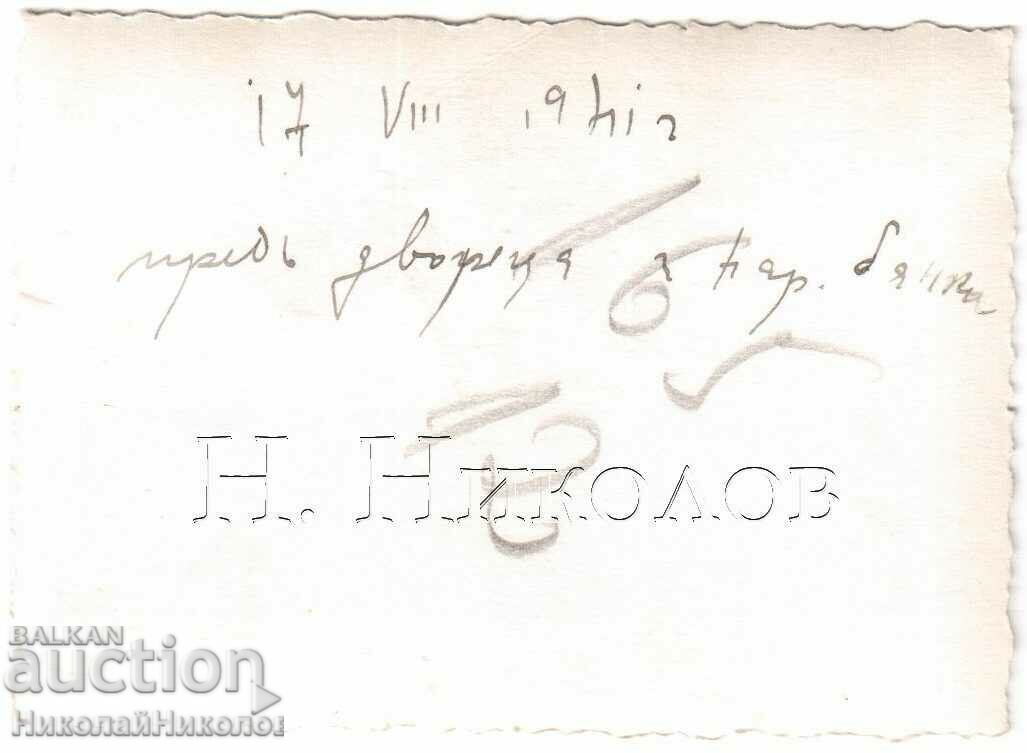 17 VIII 1941 г
предъ двореца и Нар. банка
Н. Николов
BALKAN
auction
НиколайНиколов